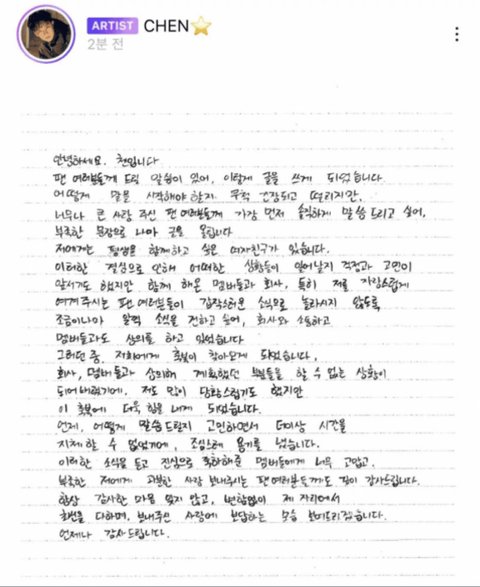 ARTIST CHEN⭐
2분 전
안녕하세요. 첸입니다
팬 여러분들께 드릴 말씀이 있어, 이렇게 글을 쓰게 되었습니다.
어떻게 말을 시작해야 할지 무척 긴장되고 떨리지만,
너무나 큰 사랑 주신 팬 여러분들께 가장 먼저 솔직하게 말씀드리고 싶어,
부족한 문장으로 나마 글을 올립니다
저에게는 평생을 함께하고 싶은 여자친구가 있습니다.
이러한 결심으로 인해 어떠한 상황들이 일어날지 걱정과 고민이
앞서기도 했지만 함께 해온 멤버들과 회사, 특히 저를 자랑스럽게
여겨주시는 팬 여러분들이 갑작스러운 소식으로 놀라시지 않도록
조금이나마 일찍 소식을 전하고 싶어, 회사와 소통하고
멤버들과도 상의를 하고 있었습니다
그러던 중, 저희에게 축복이 찾아오게 되었습니다.
회사, 멤버들과 상의해 계획했던 부분들을 할 수 없는 상황이
되어버렸기에, 저도 많이 당황스럽기도 했지만
이 축복에 더욱 힘을 내게 되었습니다.
언제, 어떻게 말씀드릴지 고민하면서 더이상 시간을
지체할 수 없었기에, 조심스레 용기를 냈습니다.
이러한 소식을 듣고 진심으로 축하해준 멤버들에게 너무 고맙고,
부족한 저에게 과분한 사랑 보내주시는 팬 여러분들께도 깊이 감사드립니다.
항상 감사한 마음 잊지 않고, 변함없이 제 자리에서
최선을 다하며, 보내주신 사랑에 보답하는 모습 보여드리겠습니다.
언제나 감사드립니다.